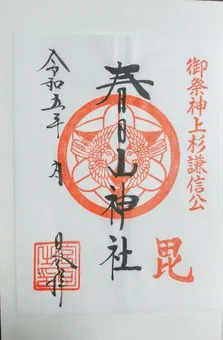 御祭神上杉謙信公
毘
春日山神社
令和五年 月 日参拝